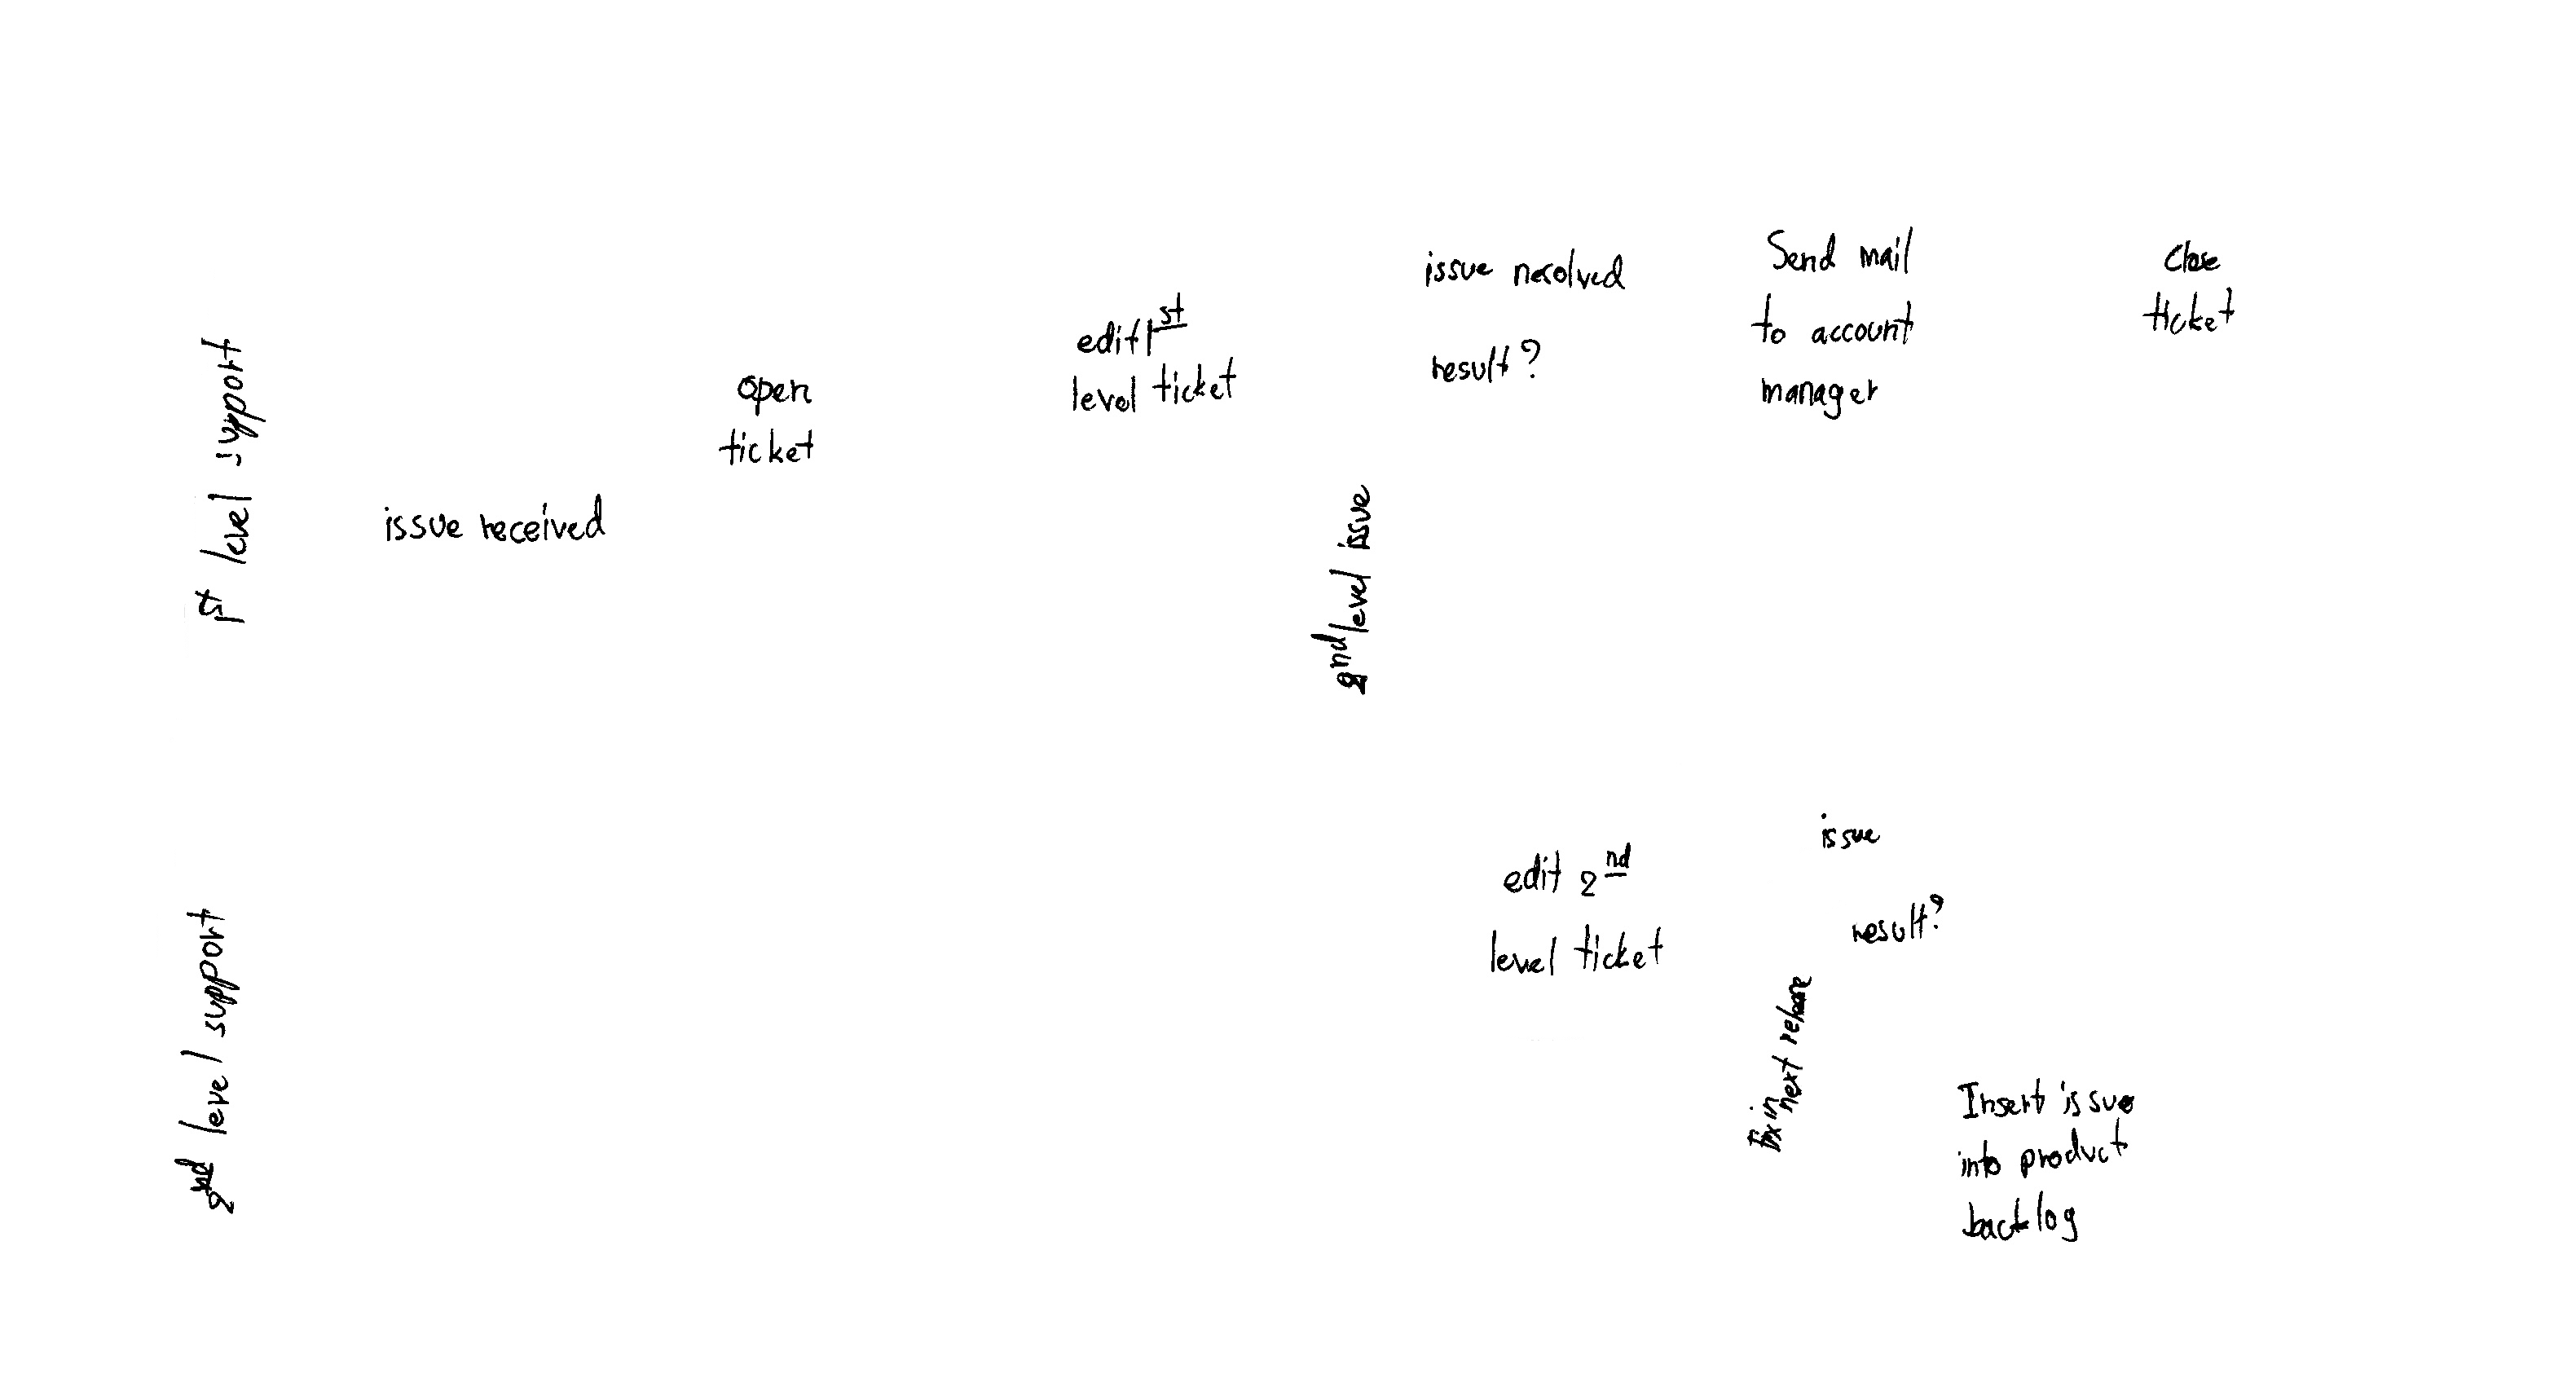 1st level support
issue received
open
ticket
edit 1st
level ticket
issue resolved
result?
2nd level issue
Send mail
to account
manager
Close
ticket
2nd level support
edit 2nd
level ticket
issue
result?
Fix in
next release
Insert issue
into product
backlog